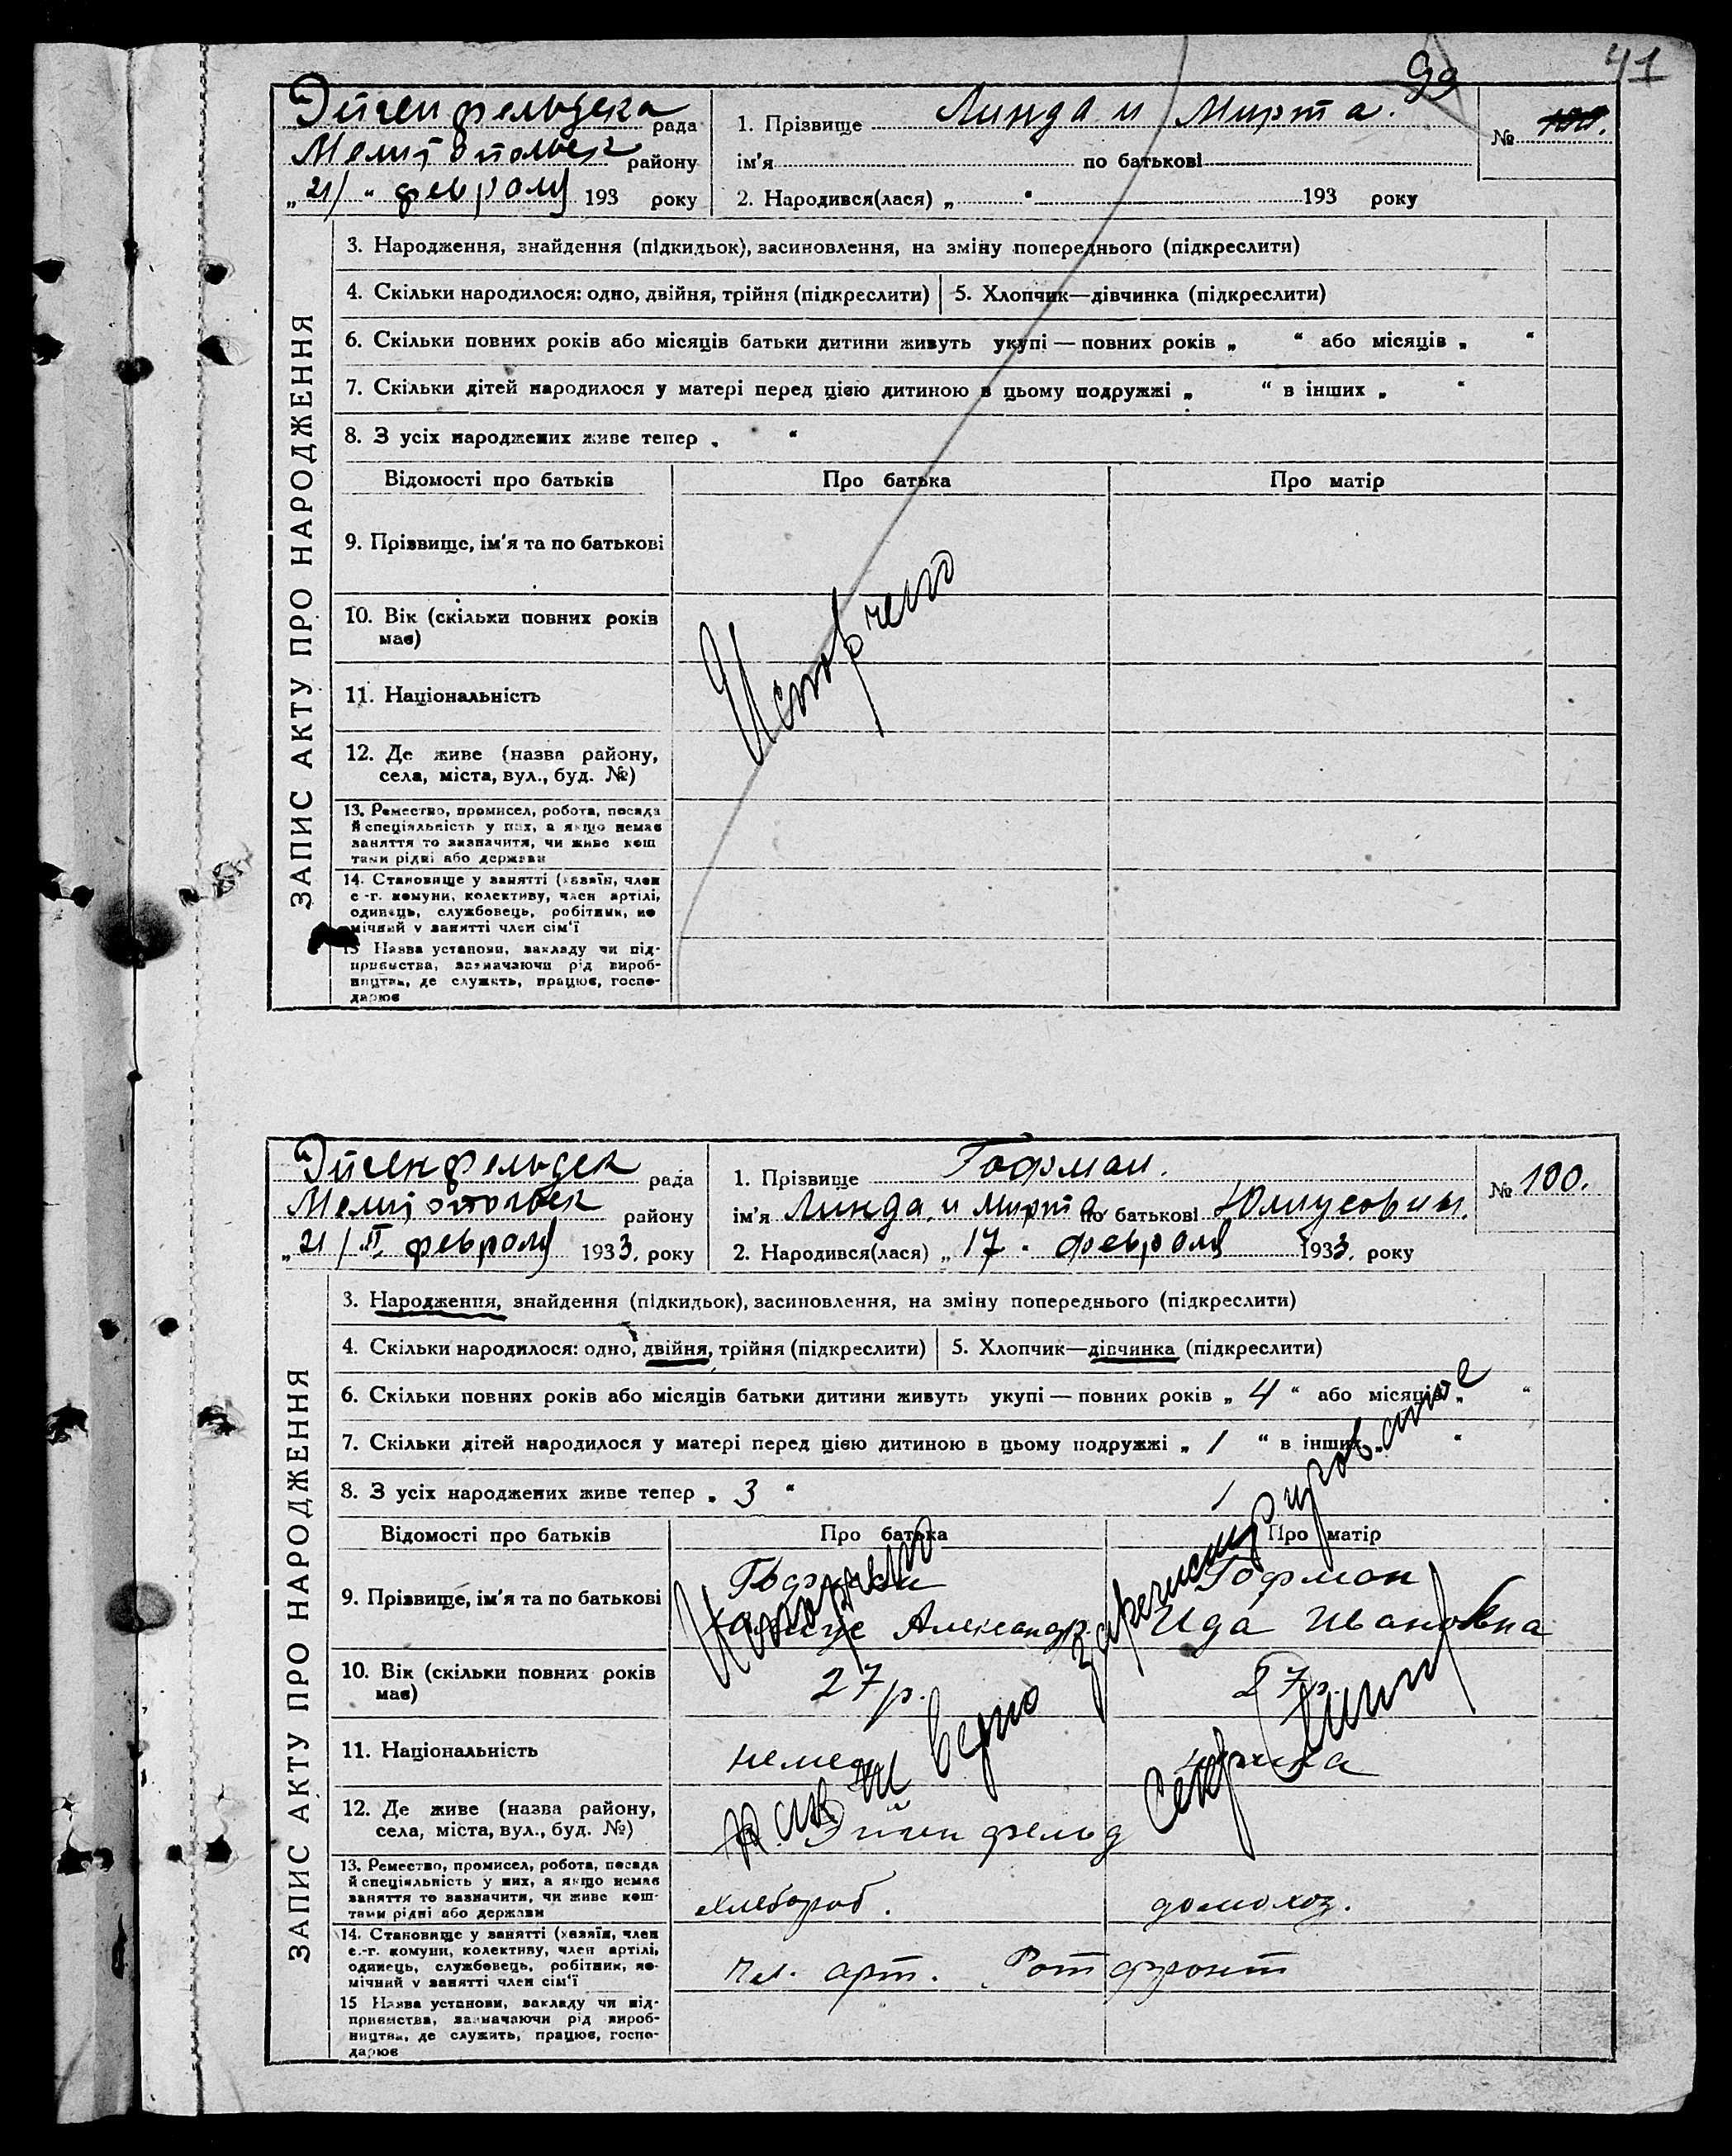 41
99
Эйгенфельдска рада
Мелитопольск району
„21/“ февраля 193 року
1. Прізвище Линда и Мирта.
№ 100.
ім'я по батькові
2. Народився(лася) „ “ 193 року
ЗАПИС АКТУ ПРО НАРОДЖЕННЯ
3. Народження, знайдення (підкидьок), засиновлення, на зміну попереднього (підкреслити)
4. Скільки народилося: одно, двійня, трійня (підкреслити) 5. Хлопчик—дівчинка (підкреслити)
6. Скільки повних років або місяців батьки дитини живуть укупі — повних років „ “ або місяців „ “
7. Скільки дітей народилося у матері перед цією дитиною в цьому подружжі „ “ в інших „ “
8. З усіх народжених живе тепер „ “
Відомості про батьків Про батька Про матір
9. Прізвище, ім'я та по батькові
10. Вік (скільки повних років
має)
11. Національність
12. Де живе (назва району,
села, міста, вул., буд. №)
13. Ремество, промисел, робота, посада
й спеціяльність у них, а якщо немає
заняття то зазначити, чи живе кош
тами рідні або держави
14. Становище у занятті (хазяїн, член
с.-г. комуни, колективу, член артілі,
одинець, службовець, робітник, по
мічний у занятті член сім'ї
15 Назва установи, закладу чи під-
приємства, зазначаючи рід вироб-
ництва, де служить, працює, госпо-
дарює
Испорчено
Эйгенфельдск рада
Мелитопольск району
„21/II февраля 1933. року
1. Прізвище Гофман.
№ 100.
ім'я Линда и Мирта по батькові Юлиусовны.
2. Народився(лася) „17“ февраля 1933. року
ЗАПИС АКТУ ПРО НАРОДЖЕННЯ
3. Народження, знайдення (підкидьок), засиновлення, на зміну попереднього (підкреслити)
4. Скільки народилося: одно, двійня, трійня (підкреслити) 5. Хлопчик—дівчинка (підкреслити)
6. Скільки повних років або місяців батьки дитини живуть укупі — повних років „ 4 “ або місяців „ “
7. Скільки дітей народилося у матері перед цією дитиною в цьому подружжі „ 1 “ в інших „ “
8. З усіх народжених живе тепер „ 3 “
Відомості про батьків Про батька Про матір
9. Прізвище, ім'я та по батькові
Гофман
Александр.
Гофман
Ида Ивановна
10. Вік (скільки повних років
має)
27 р. 27 р.
11. Національність
немец немка
12. Де живе (назва району,
села, міста, вул., буд. №)
Эйгенфельд
13. Ремество, промисел, робота, посада
й спеціяльність у них, а якщо немає
заняття то зазначити, чи живе кош-
тами рідні або держави
хлебороб. домохоз.
14. Становище у занятті (хазяїн, член
с.-г. комуни, колективу, член артілі,
одинець, службовець, робітник, по-
мічний у занятті член сім'ї
чл. арт. Ротфронт
15 Назва установи, закладу чи під-
приємства, зазначаючи рід вироб-
ництва, де служить, працює, госпо-
дарює
Испорчено
верно
Секр